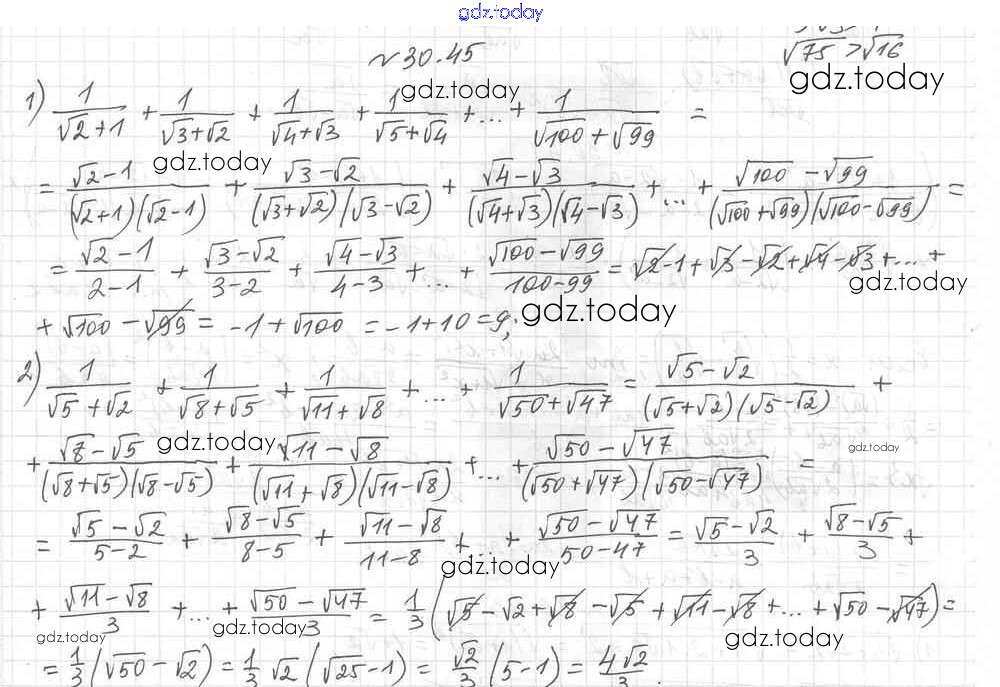 gdz.today
√75 > √16
№30.45
gdz.today
1) 1/(√2+1) + 1/(√3+√2) + 1/(√4+√3) + 1/(√5+√4) + ... + 1/(√100+√99) =
gdz.today
gdz.today
= (√2-1)/((√2+1)(√2-1)) + (√3-√2)/((√3+√2)(√3-√2)) + (√4-√3)/((√4+√3)(√4-√3)) + ... + (√100-√99)/((√100+√99)(√100-√99)) =
= (√2-1)/(2-1) + (√3-√2)/(3-2) + (√4-√3)/(4-3) + ... + (√100-√99)/(100-99) = √2-1+√3-√2+√4-√3+...+
gdz.today
+ √100 - √99 = -1+√100 = -1+10 = 9;
gdz.today
2) 1/(√5+√2) + 1/(√8+√5) + 1/(√11+√8) + ... + 1/(√50+√47) = (√5-√2)/((√5+√2)(√5-√2)) +
+ (√8-√5)/((√8+√5)(√8-√5)) + (√11-√8)/((√11+√8)(√11-√8)) + ... + (√50-√47)/((√50+√47)(√50-√47)) =
gdz.today
gdz.today
= (√5-√2)/(5-2) + (√8-√5)/(8-5) + (√11-√8)/(11-8) + ... + (√50-√47)/(50-47) = (√5-√2)/3 + (√8-√5)/3 +
gdz.today
+ (√11-√8)/3 + ... + (√50-√47)/3 = 1/3(√5-√2+√8-√5+√11-√8+...+√50-√47) =
gdz.today
gdz.today
gdz.today
= 1/3(√50-√2) = 1/3 √2(√25-1) = √2/3(5-1) = 4√2/3